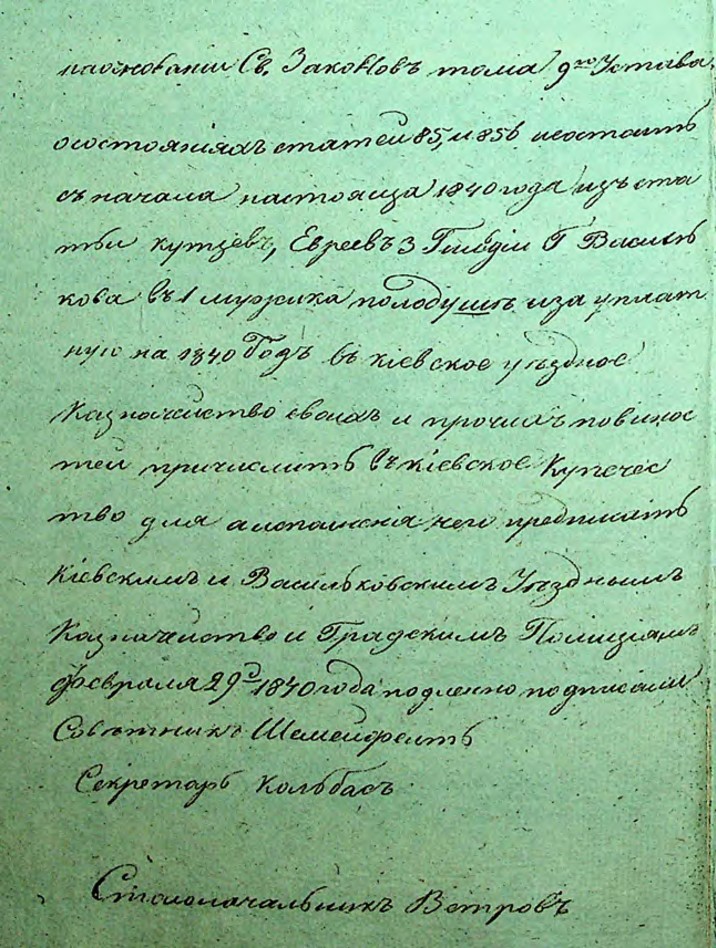 наосновании Св. Законовъ тома 9го Устава
осостоянiяхъ статей 85, и 856 исостоитъ
съ начала настояща 1840 года изъ ста
тьи купцевъ, Евреевъ 3 Гильдiи Г Василь
кова въ 1 мужика полодушъ иза уплат
ную на 1840 Годъ въ кiевское уѣздное
Казначейство своихъ и прочихъ повинос
тей причислить въ кiевское Купечес
тво для чего предписать
Кiевскимъ и Васильковскимъ Уѣзднымъ
Казначейство и Градскимъ Полицiямъ
февраля 29д 1840 года подленно подписали
Совѣтникъ
Секретарь Колбасъ
Столоначальникъ Ветровъ